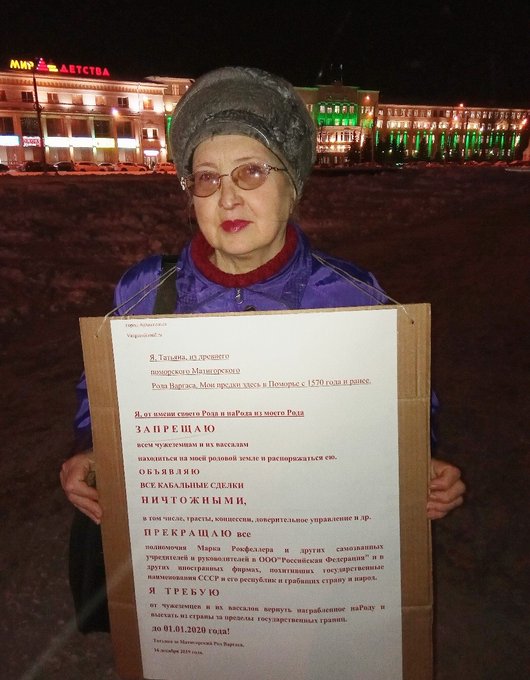 МИР ДЕТСТВА
Я, Татьяна, из древнего
поморского Матигорского
Рода Варгаса. Мои предки здесь в Поморье с 1570 года и ранее.
Я, от имени своего Рода и наРода из моего Рода
ЗАПРЕЩАЮ
всем чужеземцам и их вассалам
находиться на моей родовой земле и распоряжаться ею.
ОБЪЯВЛЯЮ
ВСЕ КАБАЛЬНЫЕ СДЕЛКИ
НИЧТОЖНЫМИ,
в том числе, трасты, концессии, доверительное управление и др.
ПРЕКРАЩАЮ все
полномочия Марка Рокфеллера и других самозванных
учредителей и руководителей в ООО"Российская Федерация" и в
других иностранных фирмах, похитивших государственные
наименования СССР и его республик и грабящих страну и народ.
Я ТРЕБУЮ
от чужеземцев и их вассалов вернуть награбленное наРоду и
выехать из страны за пределы государственных границ.
до 01.01.2020 года!
Татьяна за Матигорский Род Варгаса,
16 декабря 2019 года.